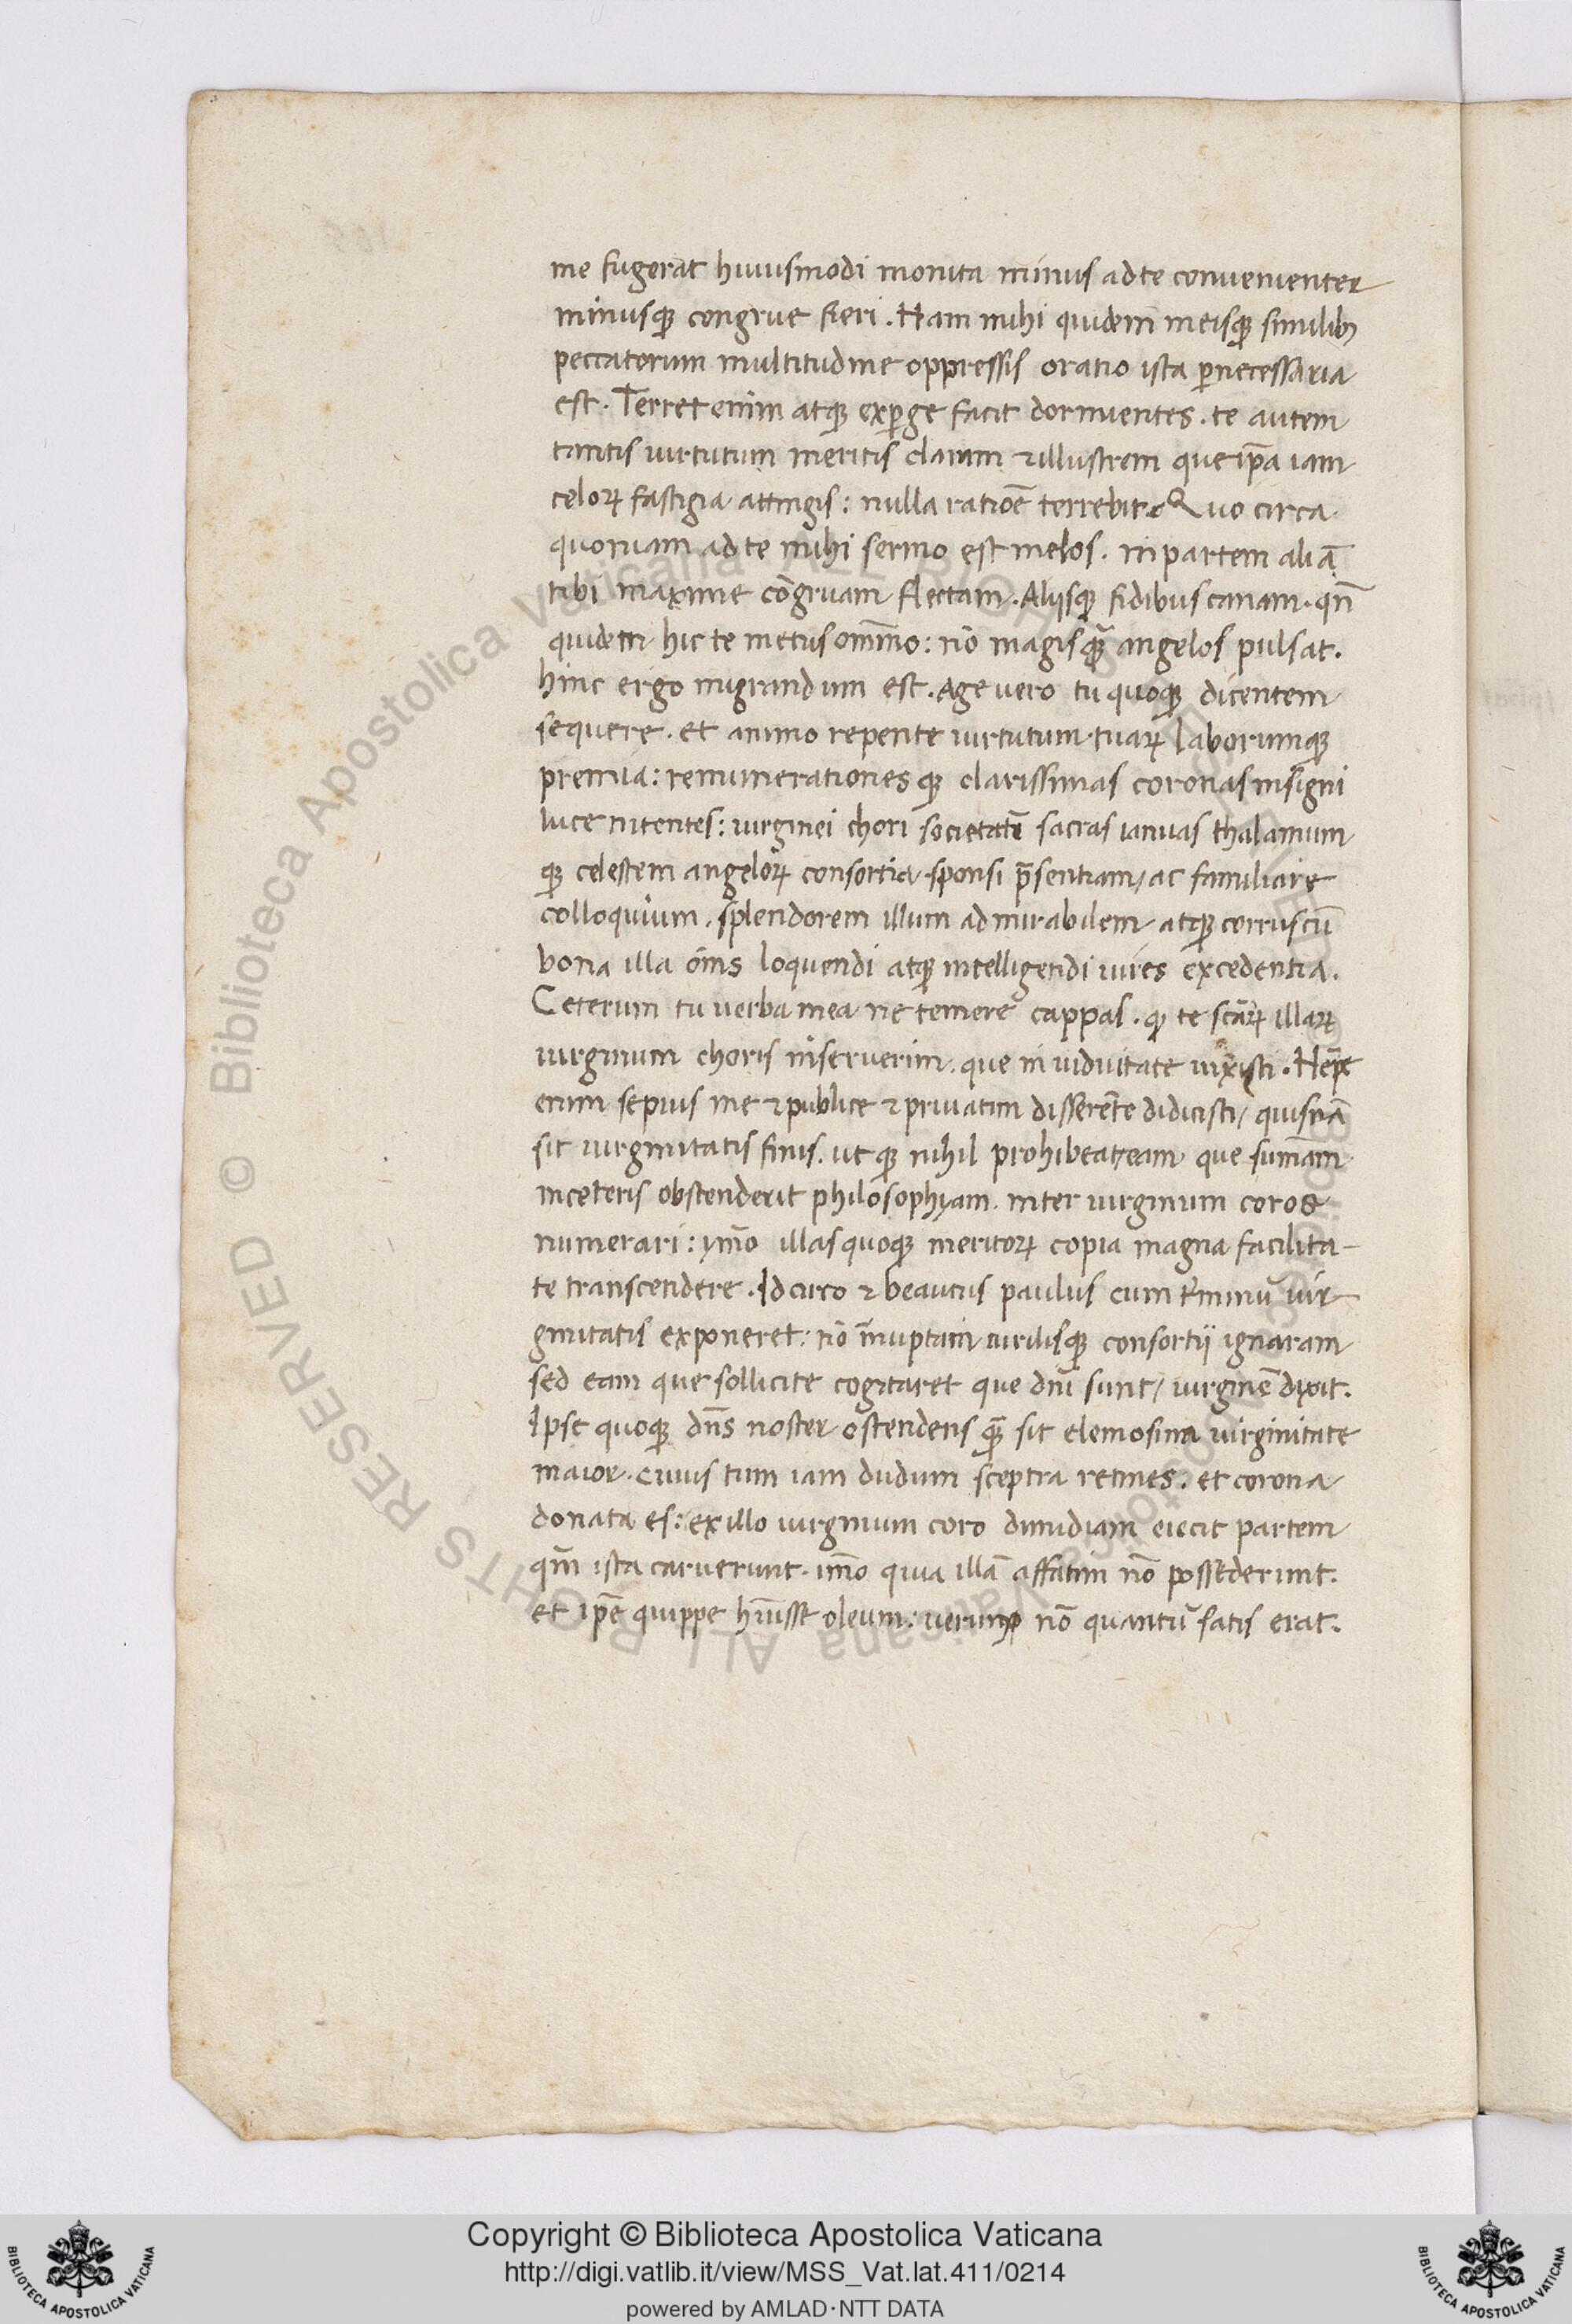 me fugerat huiusmodi monita minus ad te convenienter
minusqꝫ congrue fieri. Nam mihi quidem meisqꝫ similibꝫ
peccatorum multitudine oppressis oratio ista ꝑnecessaria
est. Terret enim atqꝫ exꝑge facit dormientes. te autem
tantis uirtutum meritis claram ⁊ illustrem que ip̄a iam
celoꝝ fastigia attingis: nulla ratiōe terrebit. Quo circa
quoniam ad te mihi sermo est melos. in partem aliā
tibi maxime cōgruam flectam. Aliisqꝫ fidibus canam. qn̄
quidem hic te metus omīno: nō magisqꝫ̄ angelos pulsat.
hinc ergo migrandum est. Age uero tu quoqꝫ dicentem
sequere. et animo repente uirtutum tuaꝝ laborumqꝫ
premia: remunerationesqꝫ clarissimas coronas insigni
luce nitentes: uirginei chori societatē sacras ianuas thalamum
qꝫ celestem angeloꝝ consortia sponsi p̄sentiam/ ac familiare
colloquium. splendorem illum admirabilem atqꝫ corruscū
bona illa ōms loquendi atqꝫ intelligendi uires excedentia.
Ceterum tu uerba mea ne temere cappas. qꝫ te scāꝝ illaꝝ
uirginum choris inseruerim. que in uiduitate uixisti. Nēpe
enim sepius me ⁊ publice ⁊ priuatim disserēte didicisti/ quisnā
sit uirginitatis finis. ut qꝫ nihil prohibeat eam que sum̄am
in ceteris obstenderit philosophyam. inter uirginum coros
numerari: ym̄o illas quoqꝫ meritoꝝ copia magna facilita-
te transcendere. Idcirco ⁊ beatus paulus cum t̄minū uir-
ginitatis exponeret: nō in̄uptam uirilisqꝫ consortii ignaram
sed eam que sollicite cogitaret que dn̄i sunt/ uirginē dixit.
Ipse quoqꝫ dn̄s noster ostendens qꝫ̄ sit elemosina uirginitate
maior. cuius tum iam dudum sceptra retines. et corona
donata es: ex illo uirginum coro dimidiam eiecit partem
qm̄ ista caruerunt. im̄o quia illā affatim nō possederunt.
et ip̄e quippe h̄uisse oleum: uerum nō quantū satis erat.
Copyright © Biblioteca Apostolica Vaticana
http://digi.vatlib.it/view/MSS_Vat.lat.411/0214
powered by AMLAD·NTT DATA